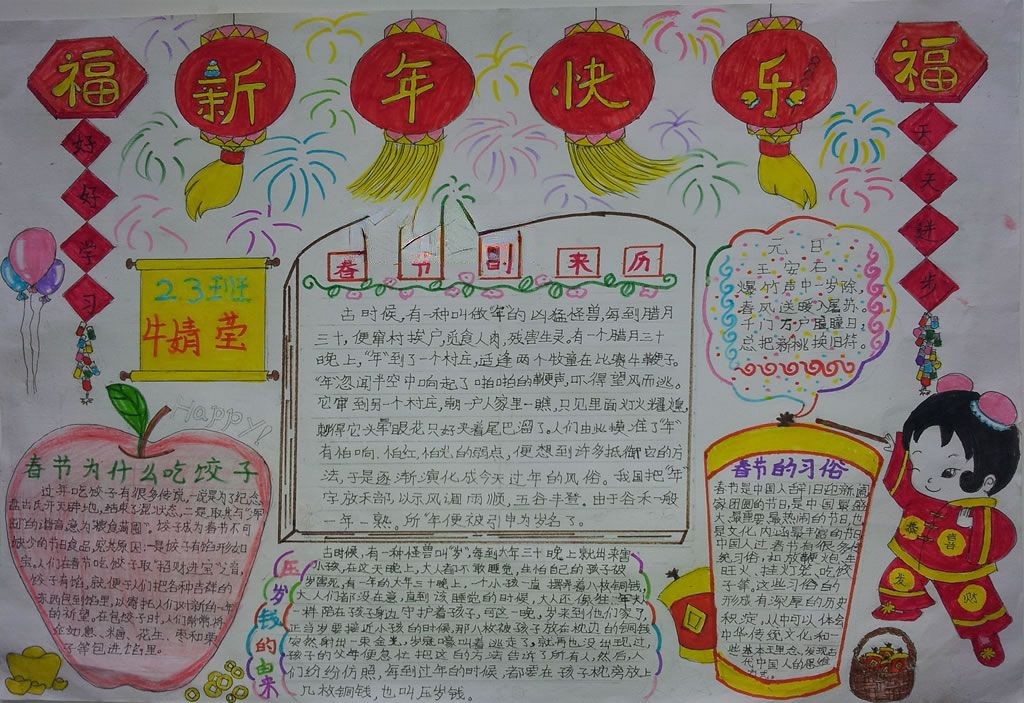 新年快乐
福
福
好好学习
乐天进步
2.3班
牛婧莹
Happy!
春节的来历
古时候，有一种叫做"年"的凶猛怪兽，每到腊月
三十，便窜村挨户，觅食人肉，残害生灵。有一个腊月三十
晚上，"年"到了一个村庄，适逢两个牧童在比赛牛鞭子。
"年"忽闻半空中响起了啪啪的鞭声，吓得望风而逃。
它窜到另一个村庄，朝一户人家里一瞧，只见里面灯火辉煌，
刺得它头晕眼花只好夹着尾巴溜了。人们由此摸准了"年"
有怕响，怕红，怕光的弱点，便想到许多抵御它的方
法，于是逐渐演化成今天过年的风俗。我国把"年"
字放禾部，以示风调雨顺，五谷丰登。由于谷禾一般
一年一熟。所"年"便被引申为岁名了。
元日
王安石
爆竹声中一岁除，
春风送暖入屠苏。
千门万户曈曈日，
总把新桃换旧符。
春节为什么吃饺子
过年吃饺子有很多传说，一说是为了纪念
盘古氏开天辟地，结束了混状态，二是取其与
的谐音，意为"粮食满囤"。饺子成为春节不可
缺少的节日食品，究其原因：一是饺子有馅形如
宝，人们在春节吃饺子取"招财进宝"之音，
饺子有馅，就便于人们把各种吉祥的
东西包到馅里，以寄托人们对新的一年
的祈望。在包饺子时，人们常常将
金如意、糖、花生、枣和栗
子等包进馅里。
压岁钱的由来
古时候，有一种怪兽叫"岁"，每到大年三十晚上就出来害
小孩，在这天晚上，大人都不敢睡觉，在怕自己的孩子被
岁害死，有一年的大年三十晚上，一个小孩一直摆弄着八枚铜钱，
大人们都没在意，直到该睡觉的时候，大人还像往年
一样陪在孩子身边守护着孩子，可这一晚，岁来到他们家了，
正当岁要接近小孩的时候，那八枚被孩子放在枕边的铜钱
突然射出一束金光，岁嚎叫着逃走了，就再也没出现过，
孩子的父母便急忙把这个方法告诉了所有人，然后人
们纷纷仿照，每到过年的时候，都要在孩子枕旁放上
几枚铜钱，也叫压岁钱。
春节的习俗
春节是中国人吉祥日迎新阖
家团圆的节日，是中国最盛
大、最重要最热闹的节日，也
是文化内涵最丰富的节日
中国人过春节有很多传
统习俗，如放鞭炮
旺火、挂灯笼、吃饺
子等。这些习俗的
形成有深厚的历史
积淀，从中可以体会
中华传统文化和一
些基本理念，发现古
代中国人的思维
方式。
恭喜
发财